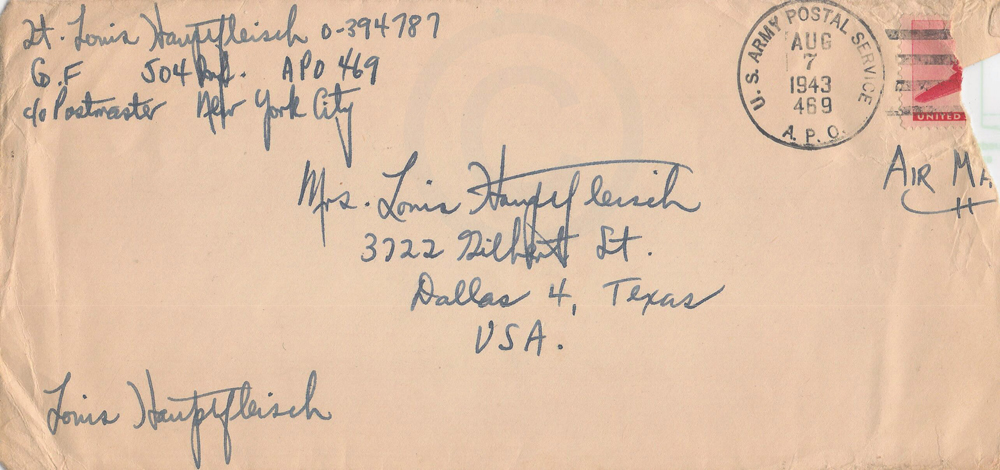 Lt. Louis Hauptfleisch O-394787
Co. F 504 Inf. APO 469
c/o Postmaster New York City
U. S. ARMY POSTAL SERVICE
AUG
7
1943
469
A. P. O.
UNITED
AIR MA
Mrs. Louis Hauptfleisch
3722 Gilbert St.
Dallas 4, Texas
USA.
Louis Hauptfleisch